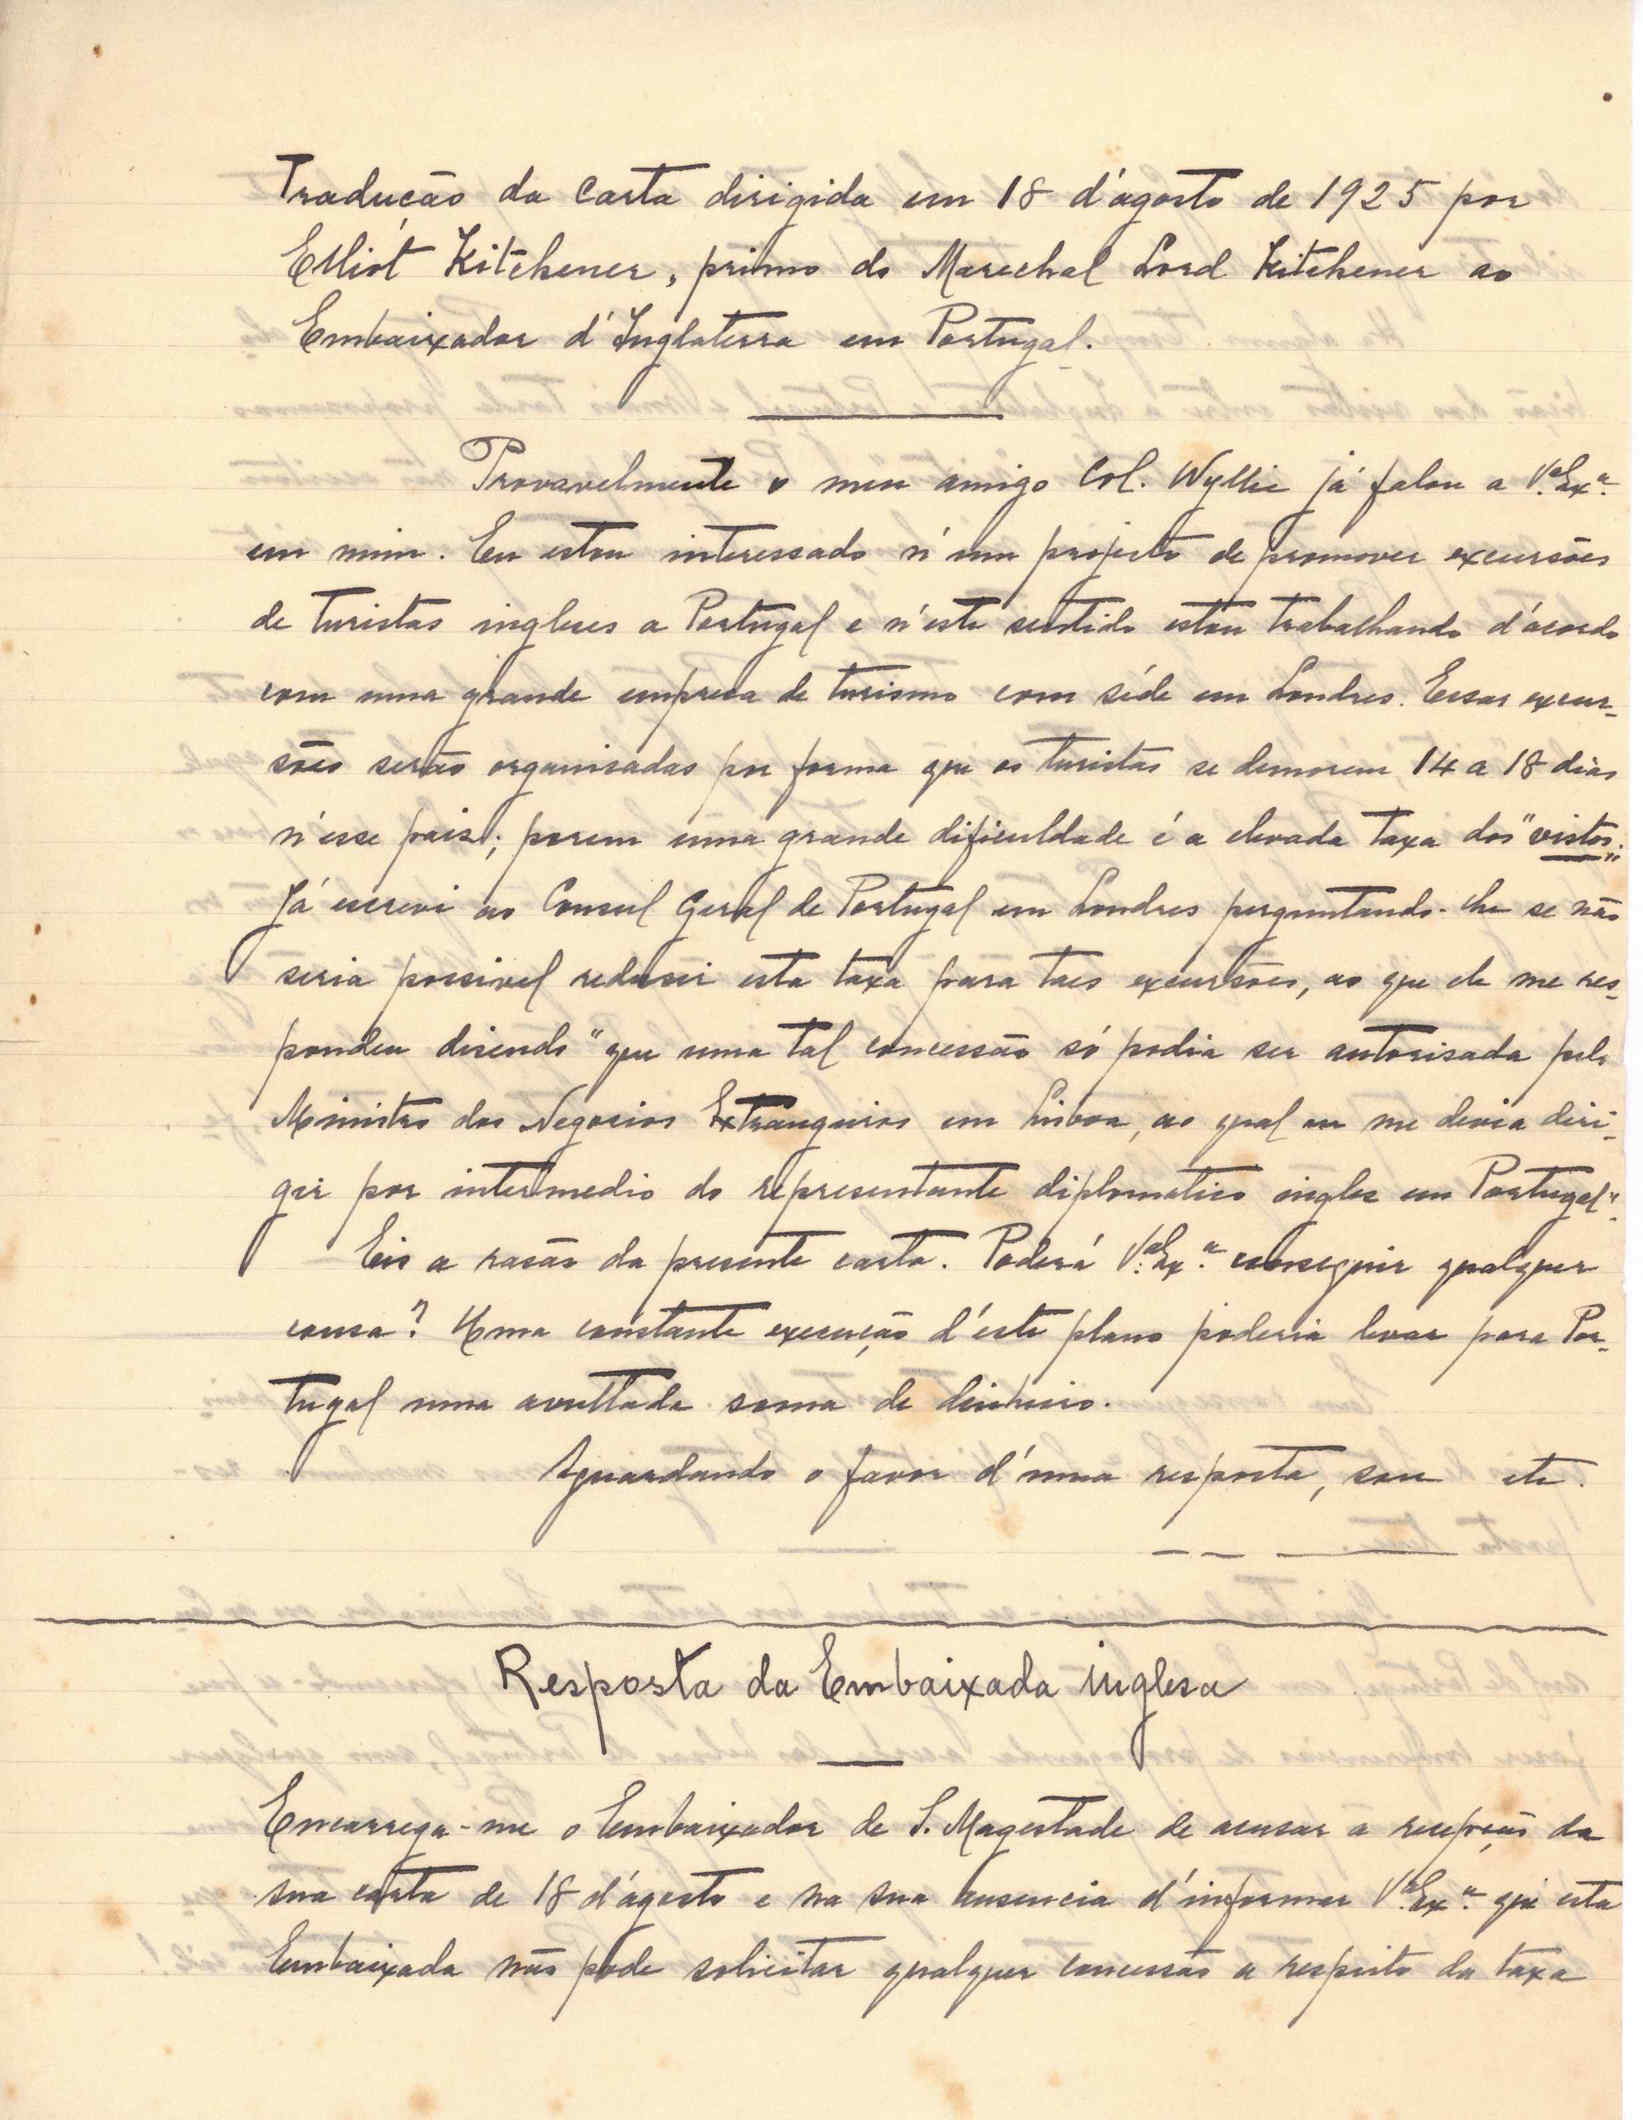 Traducção da Carta dirigida em 18 d'agosto de 1925 por
Elliot Kitchener, primo do Marechal Lord Kitchener ao
Embaixador d'Inglaterra em Portugal.
Provavelmente o meu amigo Col. Wyllie já falou a V.ª Ex.ª
em mim. Eu estou interessado n'um projecto de promover excursões
de turistas ingleses a Portugal e n'este sentido estou trabalhando d'acordo
com uma grande empresa de turismo com séde em Londres. Essas excur-
sões serão organisadas por forma que os turistas se demorem 14 a 18 dias
n'esse pais; porem uma grande dificuldade é a elevada taxa dos "vistos".
Já escrevi ao Consul Geral de Portugal em Londres perguntando-lhe se não
seria possivel redusir esta taxa para taes excursões, ao que ele me res-
pondeu disendo "que uma tal concessão só podia ser autorisada pelo
Ministro dos Negocios Extrangeiros em Lisboa, ao qual eu me devia diri-
gir por intermedio do representante diplomatico ingles em Portugal".
Eis a rasão da presente carta. Poderá V.ª Ex.ª conseguir qualquer
cousa? Uma constante execução d'este plano poderia levar para Por-
tugal uma avultada soma de dinheiro.
Aguardando o favor d'uma resposta, sou etc.
Resposta da Embaixada inglesa
Encarrega-me o Embaixador de S. Magestade de acusar a recepção da
sua carta de 18 d'agosto e na sua ausencia d'informar V.ª Ex.ª que esta
Embaixada não pode solicitar qualquer concessão a respeito da taxa